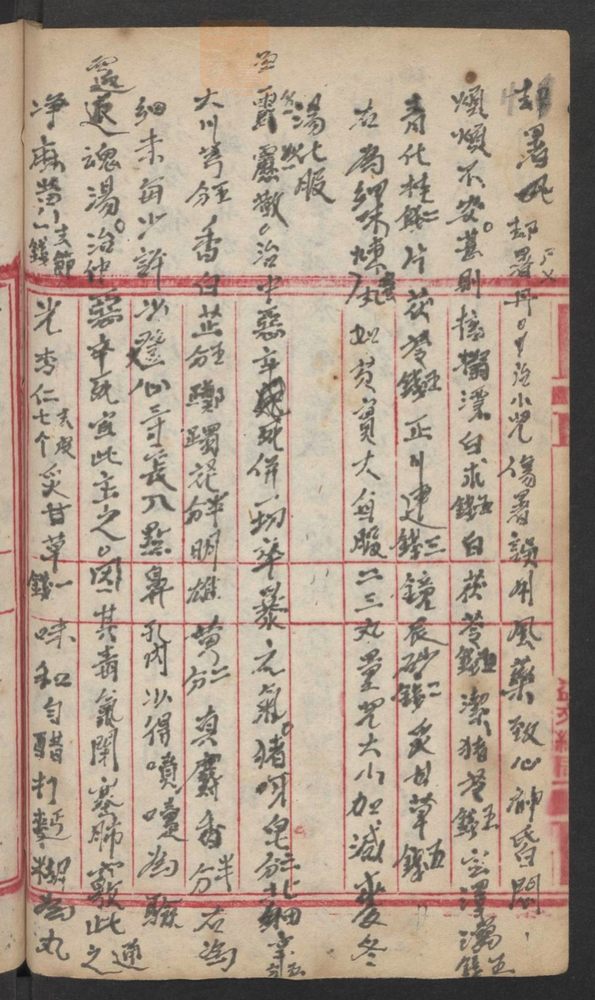 却暑丹 却暑丹。治小兒傷暑誤用風藥致心神昏悶,
煩燥不安。甚則搐搦 漂白术錢五 白茯苓錢五 潔猪苓錢五 宣澤瀉錢五
青化桂錢二 片茯苓錢五 正川連錢三 鏡辰砂錢二 炙甘草錢五
右為細末煉蜜丸如芡實大每服一二三丸量兒大小加減麥冬
湯化服
霹靂散。治中惡卒死併一切卒暴之氣。猪牙皂五分 北細辛五分
大川芎五分 香白芷五分 躑躅花半分 明雄黃二分 真麝香半分 右為
細末每少許以燈心三寸長入點鼻孔內少得噴嚏為驗
還魂湯。治中惡卒死宜此主之。因其毒氣閉塞肺竅此通之
淨麻黃去節一錢 光杏仁七个去皮 炙甘草一錢 味和勻醋打麵糊為丸